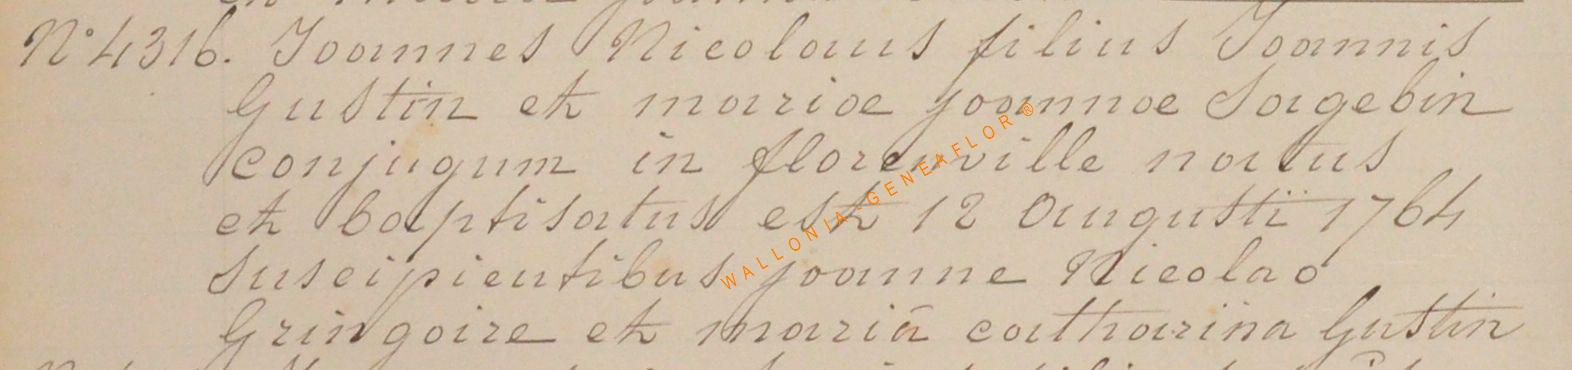 N° 4316. Joannes Nicolaus filius Joannis
Gustin et mariae joannae Sagebin
conjugum in florenville natus
et baptisatus est 12 augustii 1764
suscipientibus joanne Nicolao
Gringoire et mariā catharina Gustin
WALLONIA-GENEAFLOR ®